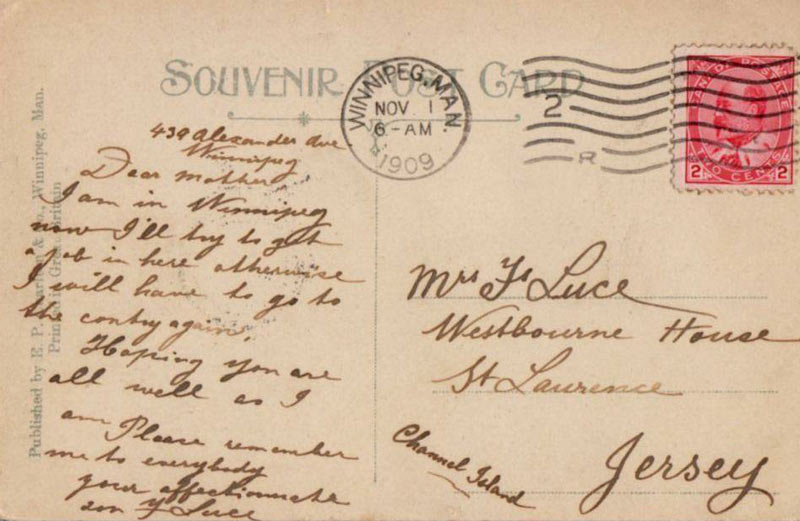 SOUVENIR POST CARD
WINNIPEG, MAN.
NOV 1
6-AM
1909
2
R
CANADA POSTAGE
2 2
TWO CENTS
Published by E. P. & Co., Winnipeg, Man.
Printed in Great Britain
439 Alexander Ave
Winnipeg
Dear mother
I am in Winnipeg
now I'll try to get
a job in here otherwise
I will have to go to
the contry again.
Hoping you are
all well as I
am Please remember
me to everybody
your affectionnate
son Luce
Mrs Luce
Westbourne House
St Laurence
Jersey
Channel Island